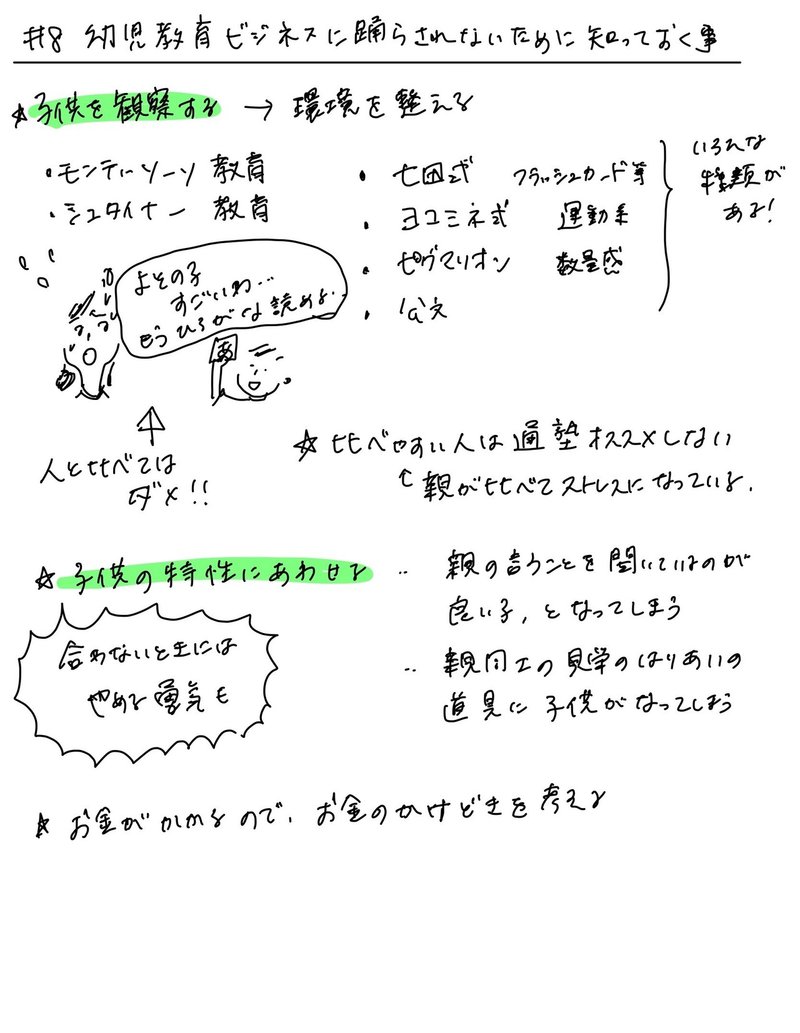 #8 幼児教育ビジネスに踊らされないために知っておく事
☆子供を観察する → 環境を整える
・モンテッソーリ 教育
・シュタイナー 教育
・七田式 フラッシュカード等
・ヨコミネ式 運動系
・ピグマリオン 数量感
・公文
いろんな
種類が
ある!
よその子
すごいわ…
もうひらがな読める…
あ
↑
人と比べては
ダメ!!
☆比べやすい人は通塾オススメしない
↑親が比べてストレスになっている.
☆子供の特性にあわせる
‥ 親の言うことを聞いているのが
良い子, となってしまう
‥ 親同士の見栄のはりあいの
道具に子供がなってしまう
合わないときには
やめる勇気も
☆お金がかかるので, お金のかけどきを考える